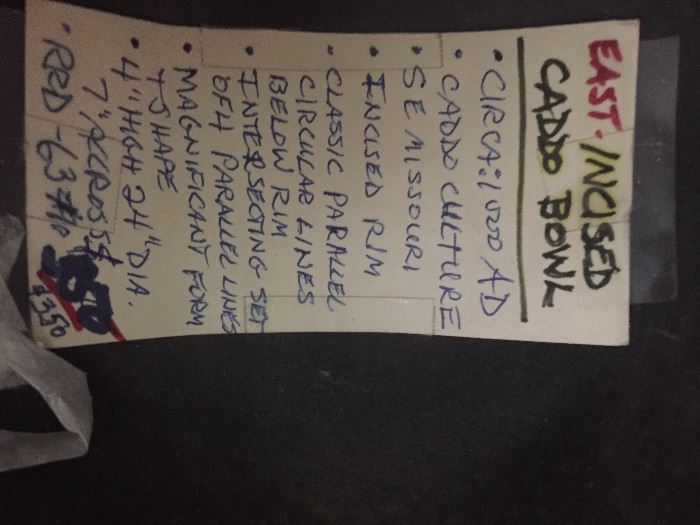 EAST. INCISED
CADDO BOWL
• CIRCA: 1000 AD
• CADDO CULTURE
• SE MISSOURI
• INCISED RIM
• CLASSIC PARALLEL
CIRCULAR LINES
BELOW RIM
• INTERSECTING SET
OF 4 PARALLEL LINES
• MAGNIFICANT FORM
+ SHAPE
• 4" HIGH 24" DIA.
7" ACROSS
• RRD-63
$350